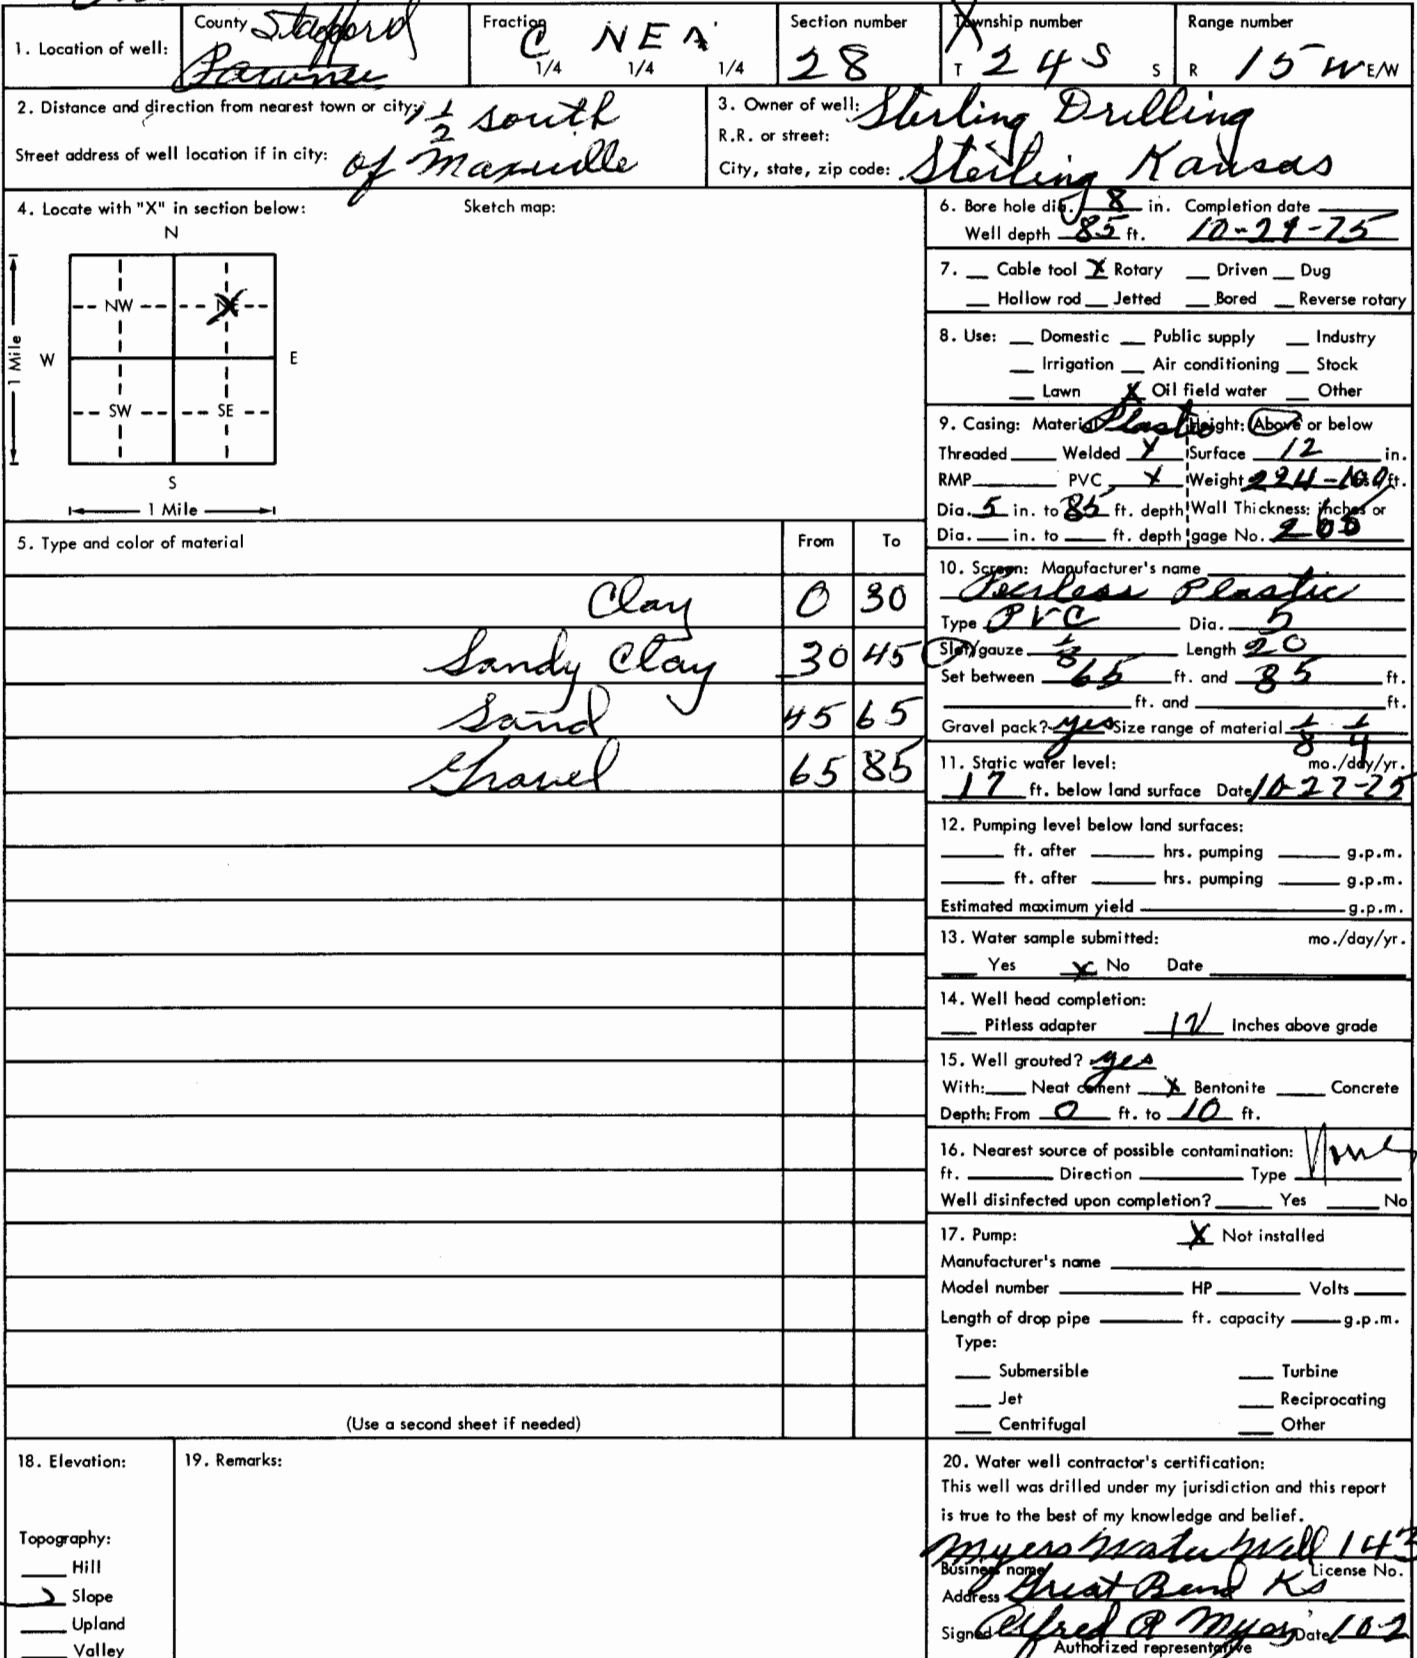 1. Location of well:
County Stafford
Pawnee
Fraction
C NE
1/4 1/4 1/4
Section number
28
Township number
T 24 S S
Range number
R 15 W E/W
2. Distance and direction from nearest town or city: 1/2 south
Street address of well location if in city: of Macksville
3. Owner of well: Sterling Drilling
R.R. or street:
City, state, zip code: Sterling Kansas
4. Locate with "X" in section below:
Sketch map:
N
NW X
W E
SW SE
S
1 Mile
1 Mile
5. Type and color of material From To
Clay 0 30
Sandy Clay 30 45
Sand 45 65
Gravel 65 85
(Use a second sheet if needed)
6. Bore hole dia. 8 in. Completion date
Well depth 85 ft. 10-29-75
7. Cable tool X Rotary Driven Dug
Hollow rod Jetted Bored Reverse rotary
8. Use: Domestic Public supply Industry
Irrigation Air conditioning Stock
Lawn X Oil field water Other
9. Casing: Material Plastic Height: Above or below
Threaded Welded X Surface 12 in.
RMP PVC X Weight ft.
Dia. 5 in. to 85 ft. depth Wall Thickness: inches or
Dia. in. to ft. depth gage No. 200
10. Screen: Manufacturer's name
Peerless Plastic
Type PVC Dia. 5
Slot/gauze 1/8 Length 20
Set between 65 ft. and 85 ft.
ft. and ft.
Gravel pack? yes Size range of material 1/8 1/4
11. Static water level: mo./day/yr.
17 ft. below land surface Date 10-27-75
12. Pumping level below land surfaces:
ft. after hrs. pumping g.p.m.
ft. after hrs. pumping g.p.m.
Estimated maximum yield g.p.m.
13. Water sample submitted: mo./day/yr.
Yes X No Date
14. Well head completion:
Pitless adapter 12 Inches above grade
15. Well grouted? yes
With: Neat cement X Bentonite Concrete
Depth: From 0 ft. to 10 ft.
16. Nearest source of possible contamination: None
ft. Direction Type
Well disinfected upon completion? Yes No
17. Pump: X Not installed
Manufacturer's name
Model number HP Volts
Length of drop pipe ft. capacity g.p.m.
Type:
Submersible Turbine
Jet Reciprocating
Centrifugal Other
18. Elevation:
Topography:
Hill
Slope
Upland
Valley
19. Remarks:
20. Water well contractor's certification:
This well was drilled under my jurisdiction and this report
is true to the best of my knowledge and belief.
Myers Water Well 143
Business name License No.
Address Great Bend Ks
Signed Alfred R Myers Date 10-2
Authorized representative